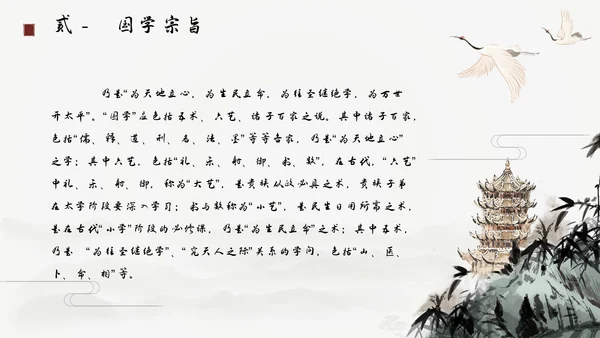 贰- 国学宗旨
乃是“为天地立心，为生民立命，为往圣继绝学，为万世
开太平”。“国学”应包括五术、六艺、诸子百家之说。其中诸子百家，
包括“儒、释、道、刑、名、法、墨”等等各家，乃是“为天地立心”
之学；其中六艺，包括“礼、乐、射、御、书、数”，在古代，“六艺”
中礼、乐、射、御，称为“大艺”，是贵族从政必具之术，贵族子弟
在太学阶段要深入学习；书与数称为“小艺”，是民生日用所需之术，
是在古代“小学”阶段的必修课，乃是“为生民立命”之术；其中五术，
乃是 “为往圣继绝学”、“究天人之际”关系的学问，包括“山、医、
卜、命、相”等。